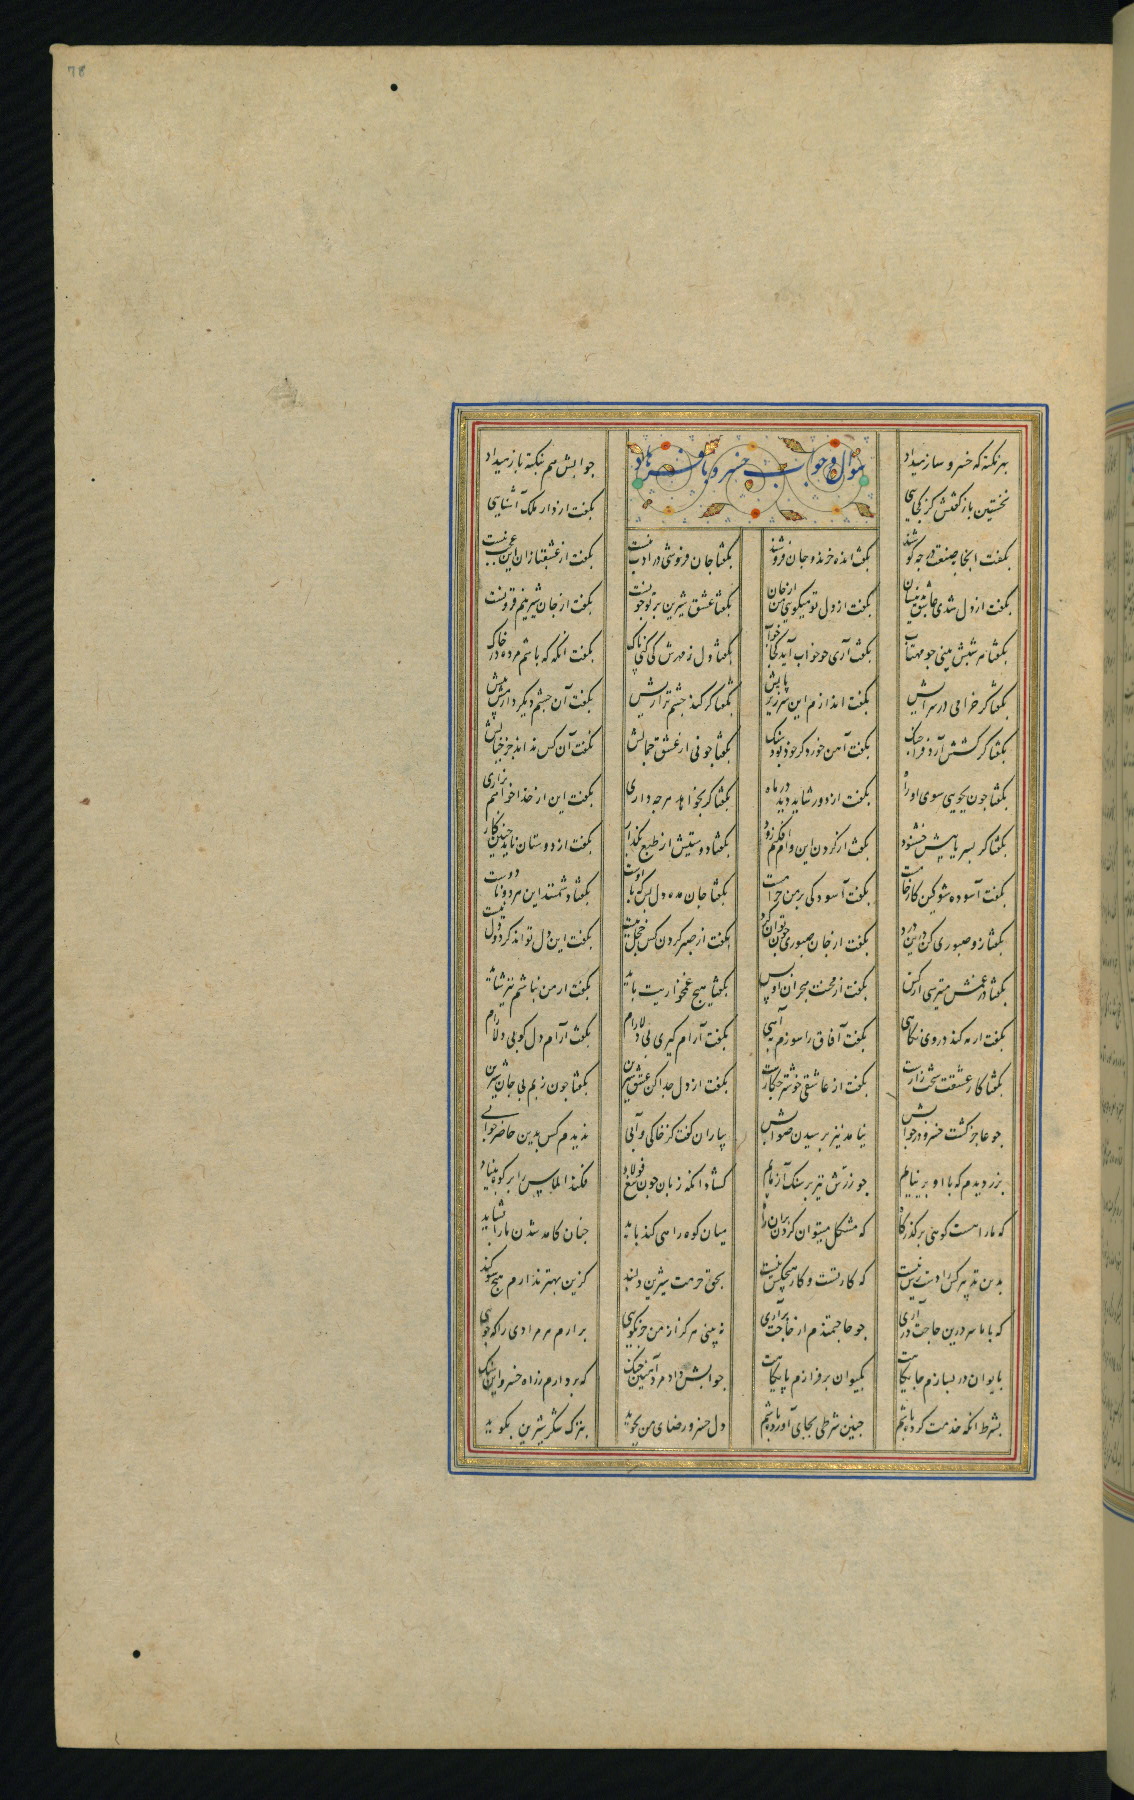 78
بهر نکته که خسرو ساز میداد
سوال و جواب خسرو با فرهاد
جوابش هم بنکته باز میداد
نخستین باز گفتش کز کجایی
بگفت از دار ملک آشنایی
بگفت انجا بصنعت در چه کوشند
بگفت انده خرند و جان فروشند
بگفتا جان فروشی در ادب نیست
بگفت از عشقبازان این عجب نیست
بگفت از دل شدی عاشق بدینسان
بگفت از دل تو میگویی من از جان
بگفتا عشق شیرین بر تو چونست
بگفت از جان شیرینم فزونست
بگفتا هر شبش بینی چو مهتاب
بگفت آری چو خواب آید کجا خواب
بگفتا دل ز مهرش کی کنی پاک
بگفت انگه که باشم مرده در خاک
بگفتا گر خرامی در سرایش
بگفت اندازم این سر زیر پایش
بگفتا گر کند چشم ترا ریش
بگفت آن چشم دیگر دارمش پیش
بگفتا گر کسش آرد فرا چنگ
بگفت آهن خورد گر خود بود سنگ
بگفتا چونی از عشق جمالش
بگفت آن کس نداند جز خیالش
بگفتا چون بجویی سوی او راه
بگفت از دور شاید دید در ماه
بگفتا گر بخواهد هر چه داری
بگفت این از خدا خواهم بزاری
بگفتا گر بسر یابیش خشنود
بگفت از گردن این وام افکنم زود
بگفتا دوستیش از طبع بگذار
بگفت از دوستان ناید چنین کار
بگفت آسوده شو کین کار خامست
بگفت آسودگی بر من حرامست
بگفتا جان مده دل بس که با اوست
بگفتا دشمنند این هر دو نا دوست
بگفتا رو صبوری کن درین درد
بگفت از جان صبوری چون توان کرد
بگفت از صبر کردن کس خجل نیست
بگفت این دل تواند کرد و دل نیست
بگفتا در غمش میترسی از کس
بگفت از محنت هجران او بس
بگفتا هیچ غمخواریت باید
بگفت ار من نباشم نیز شاید
بگفت ار مه کند در وی نگاهی
بگفت آفاق را سوزم بآهی
بگفت آرام گیری بی دلارام
بگفت آرام دل گو بی دلارام
بگفتا کار عشقت سخت زارست
بگفت از عاشقی خوشتر چکارست
بگفت از دل جدا کن عشق شیرین
بگفتا چون زیم بی جان شیرین
چو عاجز گشت خسرو در جوابش
نیامد نیز پرسیدن صوابش
بیاران گفت کز خاکی و آبی
ندیدم کس بدین حاضر جوابی
بزر دیدم که با او بر نیایم
چو زرش نیز بر سنگ آزمایم
گشاد انگه زبان چون تیغ فولاد
فکند الماس را بر کوه بنیاد
که ما را هست کوهی بر گذرگاه
که مشکل میتوان کردن بران راه
میان کوه راهی کند باید
چنان کامد شدن ما را بشاید
بدین تدبیر کس را دسترس نیست
که کار تست و کار هیچکس نیست
بحق حرمت شیرین دلبند
کزین بهتر ندارم هیچ سوگند
که با ما سر درین حاجت درآری
چو حاجتمندم از حاجت برآری
نه بینی هرگز از من جز نکویی
برارم هر مرادی را که جویی
بایوان در بسازم جایگاهت
بکیوان برفرازم پایگاهت
جوابش داد مرد آهنین چنگ
که بردارم ز راه خسرو این سنگ
بشرط انکه خدمت کرده باشم
چنین شرطی بجای آورده باشم
دل خسرو رضای من بجوید
بترک شکر شیرین بگوید